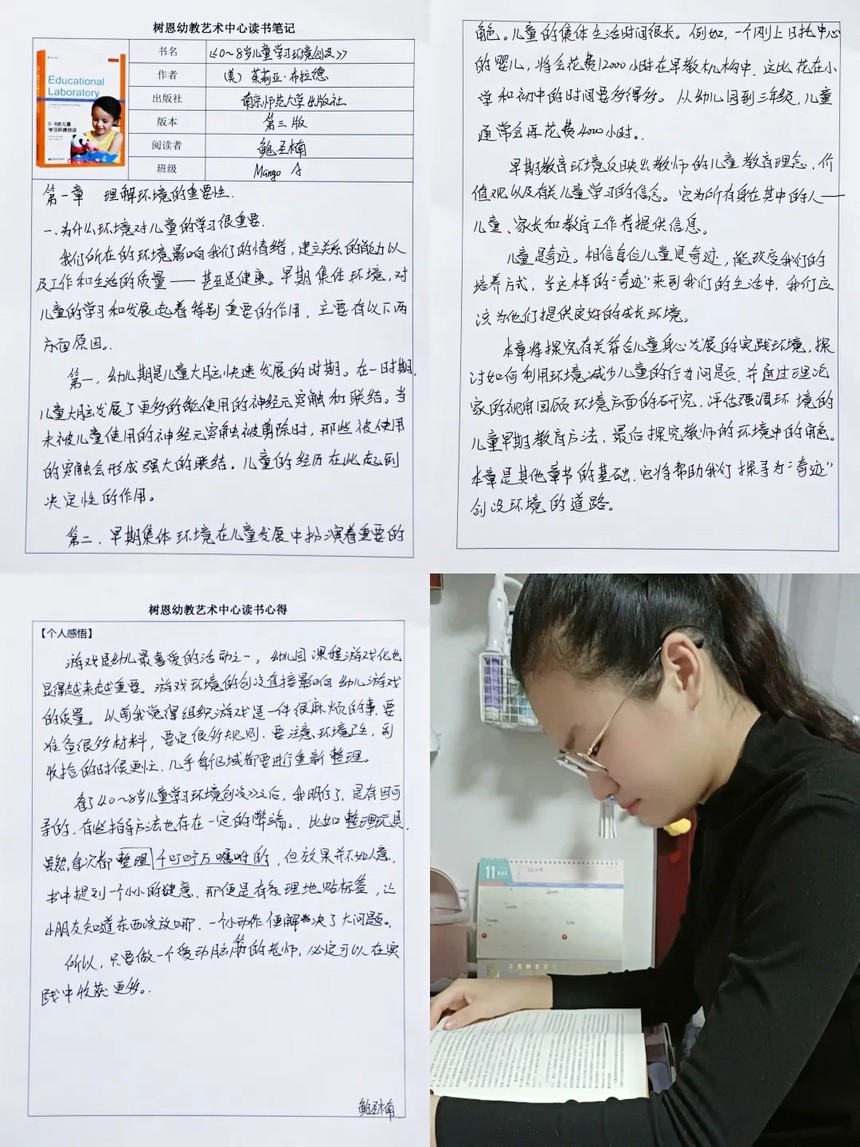 树恩幼教艺术中心读书笔记
Educational
Laboratory
0~8岁儿童
学习环境创设
书名 《0~8岁儿童学习环境创设》
作者 (美)茱莉亚·布拉德
出版社 南京师范大学出版社
版本 第三版
阅读者
班级 Mango A
第一章 理解环境的重要性.
一、为什么环境对儿童的学习很重要.
我们所在的环境影响我们的情绪,建立关系的能力以
及工作和生活的质量——甚至是健康。早期集体环境,对
儿童的学习和发展起着特别重要的作用,主要有以下两
方面原因。
第一,幼儿期是儿童大脑快速发展的时期。在一时期,
儿童大脑发展了更多的能使用的神经元突触和联结。当
未被儿童使用的神经元突触被剪除时,那些被使用
的突触会形成强大的联结。儿童的经历在此起到
决定性的作用。
第二,早期集体环境在儿童发展中扮演着重要的
角色。儿童的集体生活时间很长。例如,一个刚上日托中心
的婴儿,将会花费12000小时在早教机构中,这比花在小
学和初中的时间要多得多。从幼儿园到三年级,儿童
通常会再花费4000小时。
早期教育环境反映出教师的儿童教育理念,价
值观以及有关儿童学习的信念。它为所有身在其中的人——
儿童、家长和教育工作者提供信息。
儿童是奇迹。相信每位儿童是奇迹,能改变我们的
培养方式,当这样的“奇迹”来到我们的生活中,我们应
该为他们提供良好的成长环境。
本章将探究有关符合儿童身心发展的实践环境,探
讨如何利用环境减少儿童的行为问题,并通过理论
家的视角回顾环境方面的研究,评估强调环境的
儿童早期教育方法,最后探究教师的环境中的角色。
本章是其他章节的基础,它将帮助我们探寻为“奇迹”
创设环境的道路。
树恩幼教艺术中心读书心得
【个人感悟】
游戏是幼儿最喜爱的活动之一,幼儿园课程游戏化也
显得越来越重要。游戏环境的创设直接影响幼儿游戏
的质量。从前我觉得组织游戏是一件很麻烦的事,要
准备很多材料,要定很多规则,要注意环境卫生,到
收拾的时候更忙,几乎每区域都要进行重新整理。
看了《0~8岁儿童学习环境创设》之后,我明白了,是有因可
寻的,有些指导方法也存在一定的弊端。比如整理玩具,
虽然每次都整理千叮咛万嘱咐的,但效果并不如人意,
书中提到一个小小的建意,那便是有条理地贴标签,让
小朋友知道东西该放哪,一个小动作便解决了大问题。
所以,只要做一个爱动脑筋的老师,必定可以在实
践中收获更多。
11